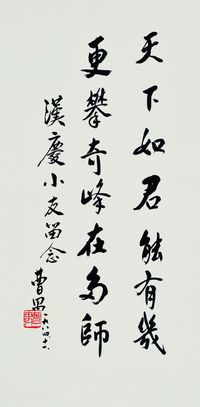 天下如君能有幾
更攀奇峰在多師
漢慶小友留念
曹禺
一九八四.十六